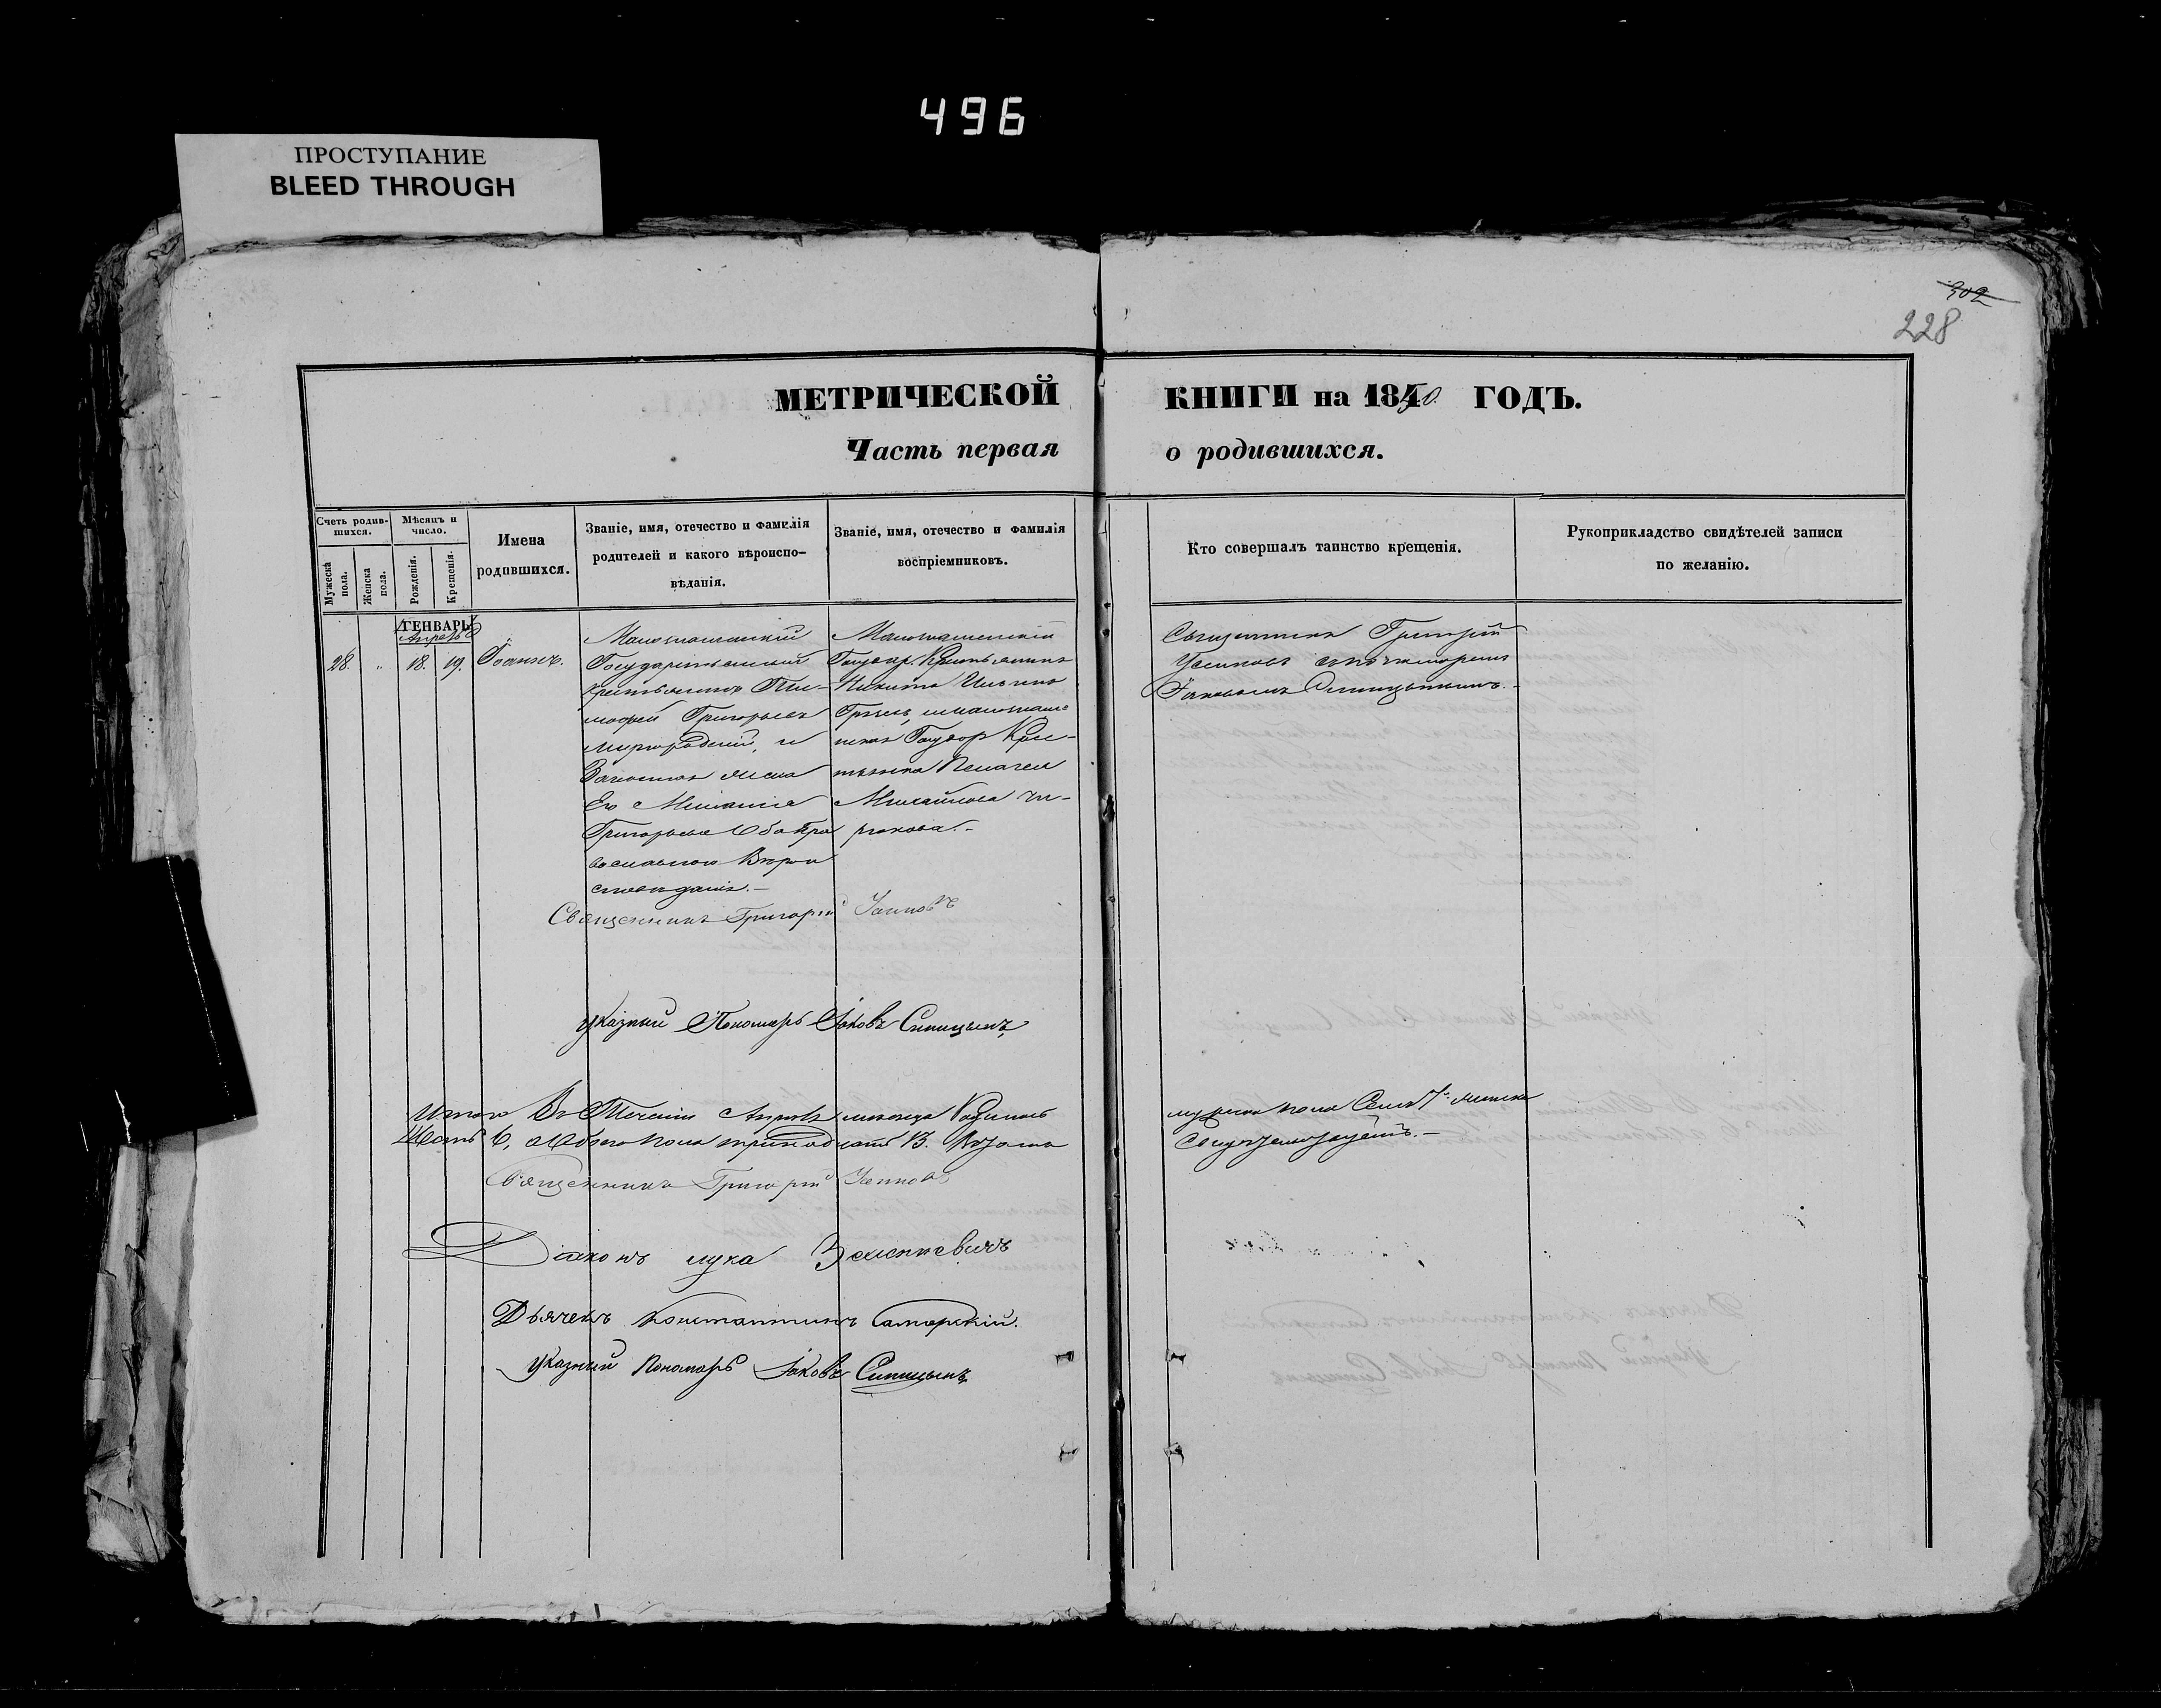 496
ПРОСТУПАНИЕ
BLEED THROUGH
302
228
МЕТРИЧЕСКОЙ КНИГИ на 1850 ГОДЪ.
Часть первая о родившихся.
Счетъ родив-
шихся.
Мужеска
пола.
Женска
пола.
Мѣсяцъ и
число.
Рожденія.
Крещенія.
Имена
родившихся.
Званіе, имя, отечество и фамилія
родителей и какого вѣроиспо-
вѣданія.
Званіе, имя, отечество и фамилія
воспріемниковъ.
Кто совершалъ таинство крещенія.
Рукоприкладство свидѣтелей записи
по желанію.
ГЕНВАРЬ
Апрель
28. " 18. 19. Іоаннъ.
Государственный
крестьянинъ Тим-
мофей Григорьевъ
Миргородскій, и
Законная жена
Его Меланія
Григорьева Оба Пра
вославного Вѣрои
споведанія.-
Государ. Крестьянинъ
Никита Ильинъ
Государ Крес-
тьянка Пелагея
Михайлова
Священникъ Григорій
Успиновъ
Іаковомъ Синицынымъ.-
Священникъ Григорій
Указный Пономарь Іаковъ Синицынъ
Итого Въ Течении Апреля месяца Родилось
мужеска пола Семь 7. женска
Шесть 6, Обоего пола тринадцать 13.
Свидетельствуемъ.-
Священникъ Григорій
Діаконъ Лука
Дьячекъ Константинъ Саморскій.
Указный Пономарь Іаковъ Синицынъ